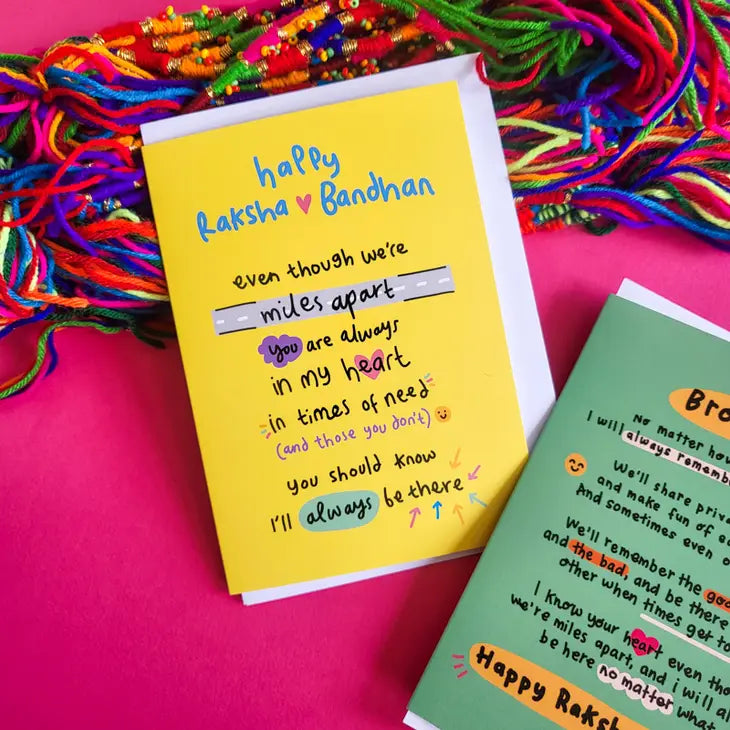 happy
Raksha Bandhan
even though we're
miles apart
you are always
in my heart
in times of need
(and those you don't)
you should know
I'll always be there
No matter
I will always
We'll share
and make fun of
And sometimes even
We'll remember the
and the bad, and be there
other when times get
I know your heart even
we're miles apart, and i will
be here no matter what
Happy